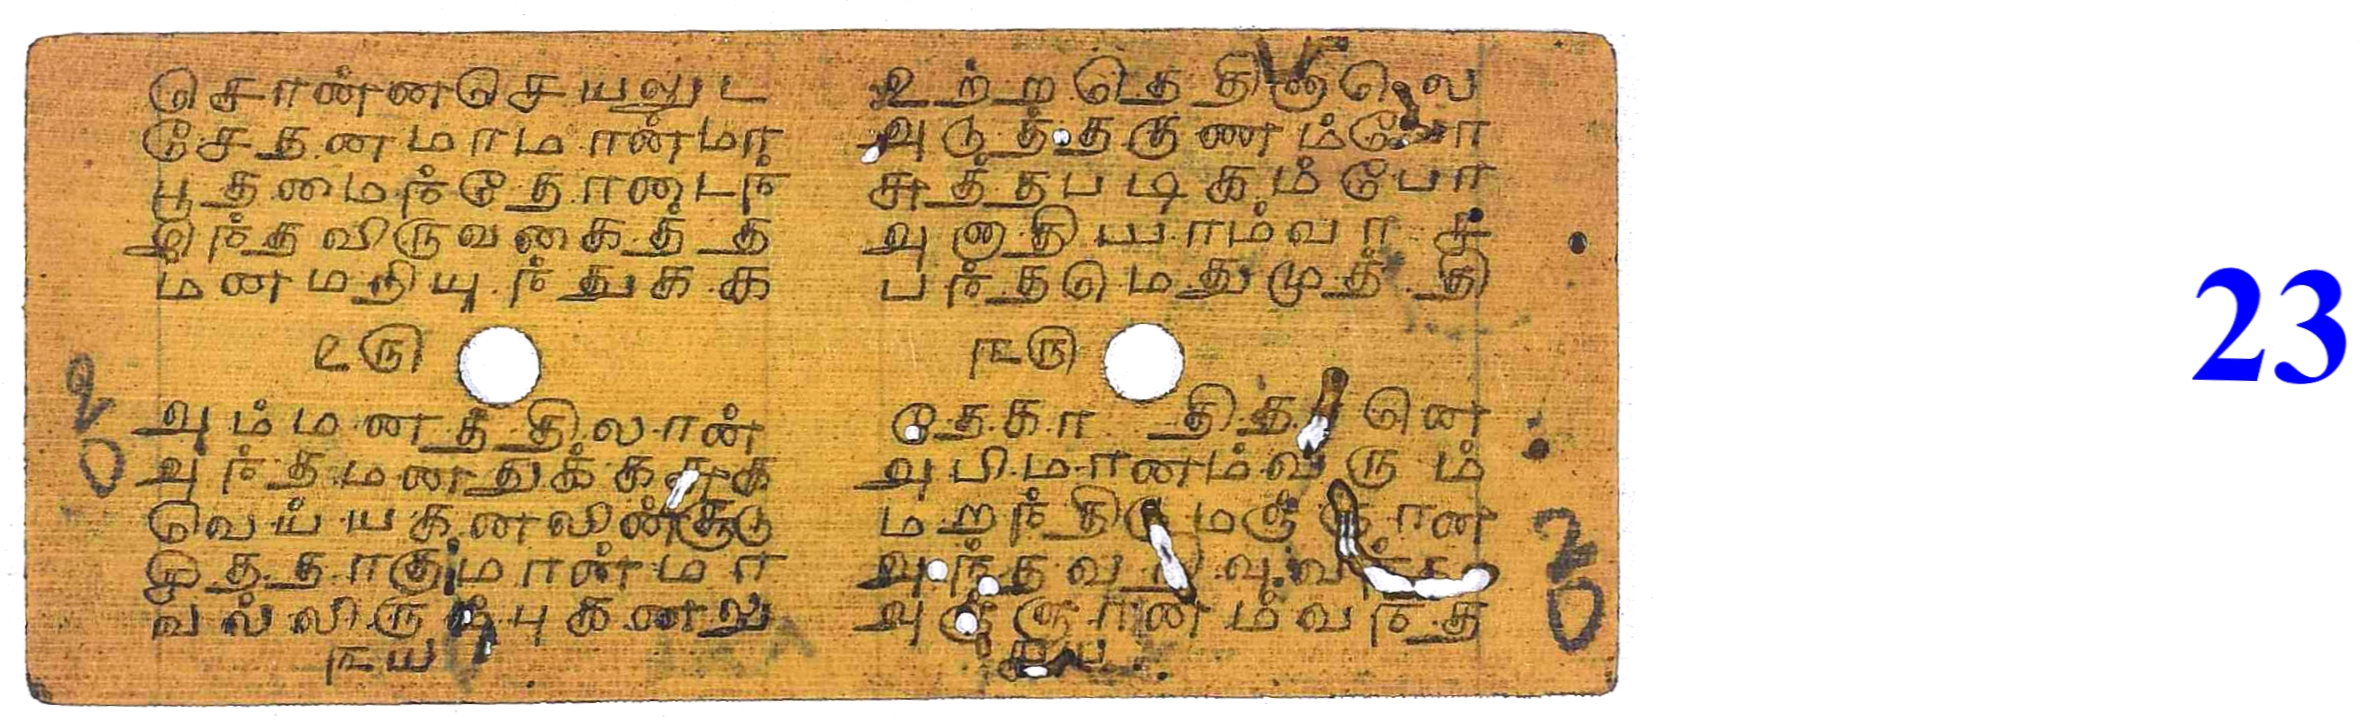 சொன்னசெயலுட
சேதனமாமான்மா
பூதமைந்தோடைந
இந்தவிருவகைத்த
மனமறியுந்துக்க
உரு
வும்மனத்திலான்
அந்தமனதுக்கசுக
வெய்யகனலின்சூடு
ஒத்தாகுமான்மா
வல்லிரு புகனறு
௩ய
உற்றதெதிலுலெ
அடுத்தகுணம்போ
சுத்தபடிகம்போ
அனாதியாம்வாச
பந்தமெதுமுத்தி
௩ரு
தேகாதித னெ
அபிமானம்வரும்
மறந்திடுமஞ்ஞான
அந்தவ வு
அஞ்ஞானம்வந்த
20
20
23